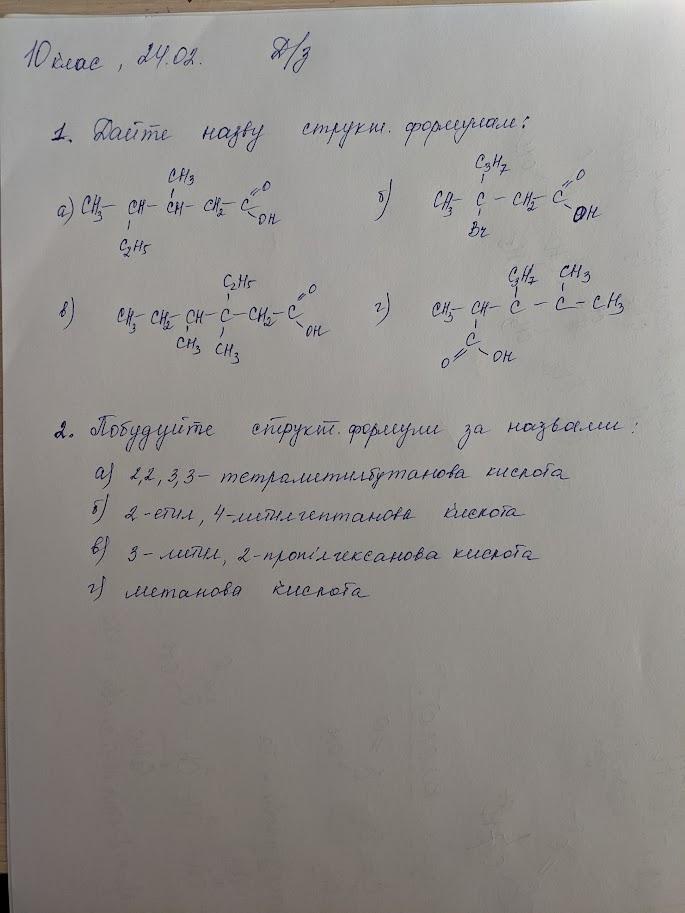 10 клас, 24.02. Д/з
1. Дайте назву структ. формулам:
CH₃ C₃H₇
а) CH₃ – CH – CH – CH₂ – C O OH б) CH₃ – C – CH₂ – C O OH
C₂H₅ Br
C₂H₅ C₃H₇ CH₃
в) CH₃ – CH₂ – CH – C – CH₂ – C O OH г) CH₃ – CH – C – C – CH₃
CH₃ CH₃ C O OH
2. Побудуйте структ. формули за назвами:
а) 2,2,3,3 – тетраметилбутанова кислота
б) 2-етил, 4-метилгептанова кислота
в) 3 – метил, 2-пропілгексанова кислота
г) метанова кислота